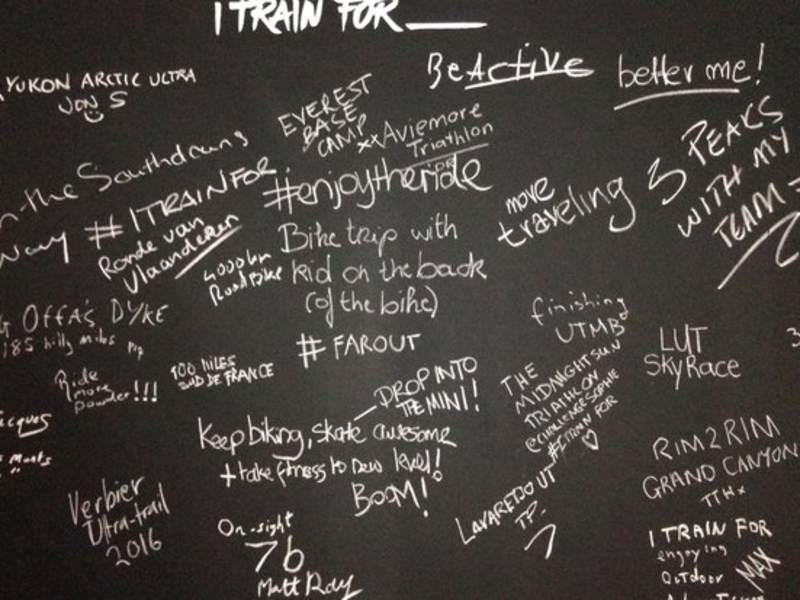 I TRAIN FOR
BeActive
better me!
YUKON ARCTIC ULTRA
JON S
EVEREST
BASE
CAMP
xx Aviemore
Triathlon
the Southdowns
Way
# ITRAINFOR
Ronde van
Vlaanderen
#enjoytheride
move
traveling
3 PEAKS
WITH MY
TEAM
4000km
Road Bike
Bike trip with
kid on the back
(of the bike)
# FAROUT
OFFA'S DYKE
185 hilly miles
finishing
UTMB
LUT
SkyRace
Ride
more
powder!!!
100 MILES
SUD DE FRANCE
DROP INTO
THE MINI!
THE
MIDNIGHT SUN
TRIATHLON
@CHALLENGESOPHIE
#ITRAIN FOR
Keep biking, skate awesome
+ take fitness to new level!
BOOM!
RIM 2 RIM
GRAND CANYON
Verbier
Ultra-trail
2016
On-sight
7b
Matt Ray
LAVAREDO UT
I TRAIN FOR
enjoying
OUTDOOR
MAX